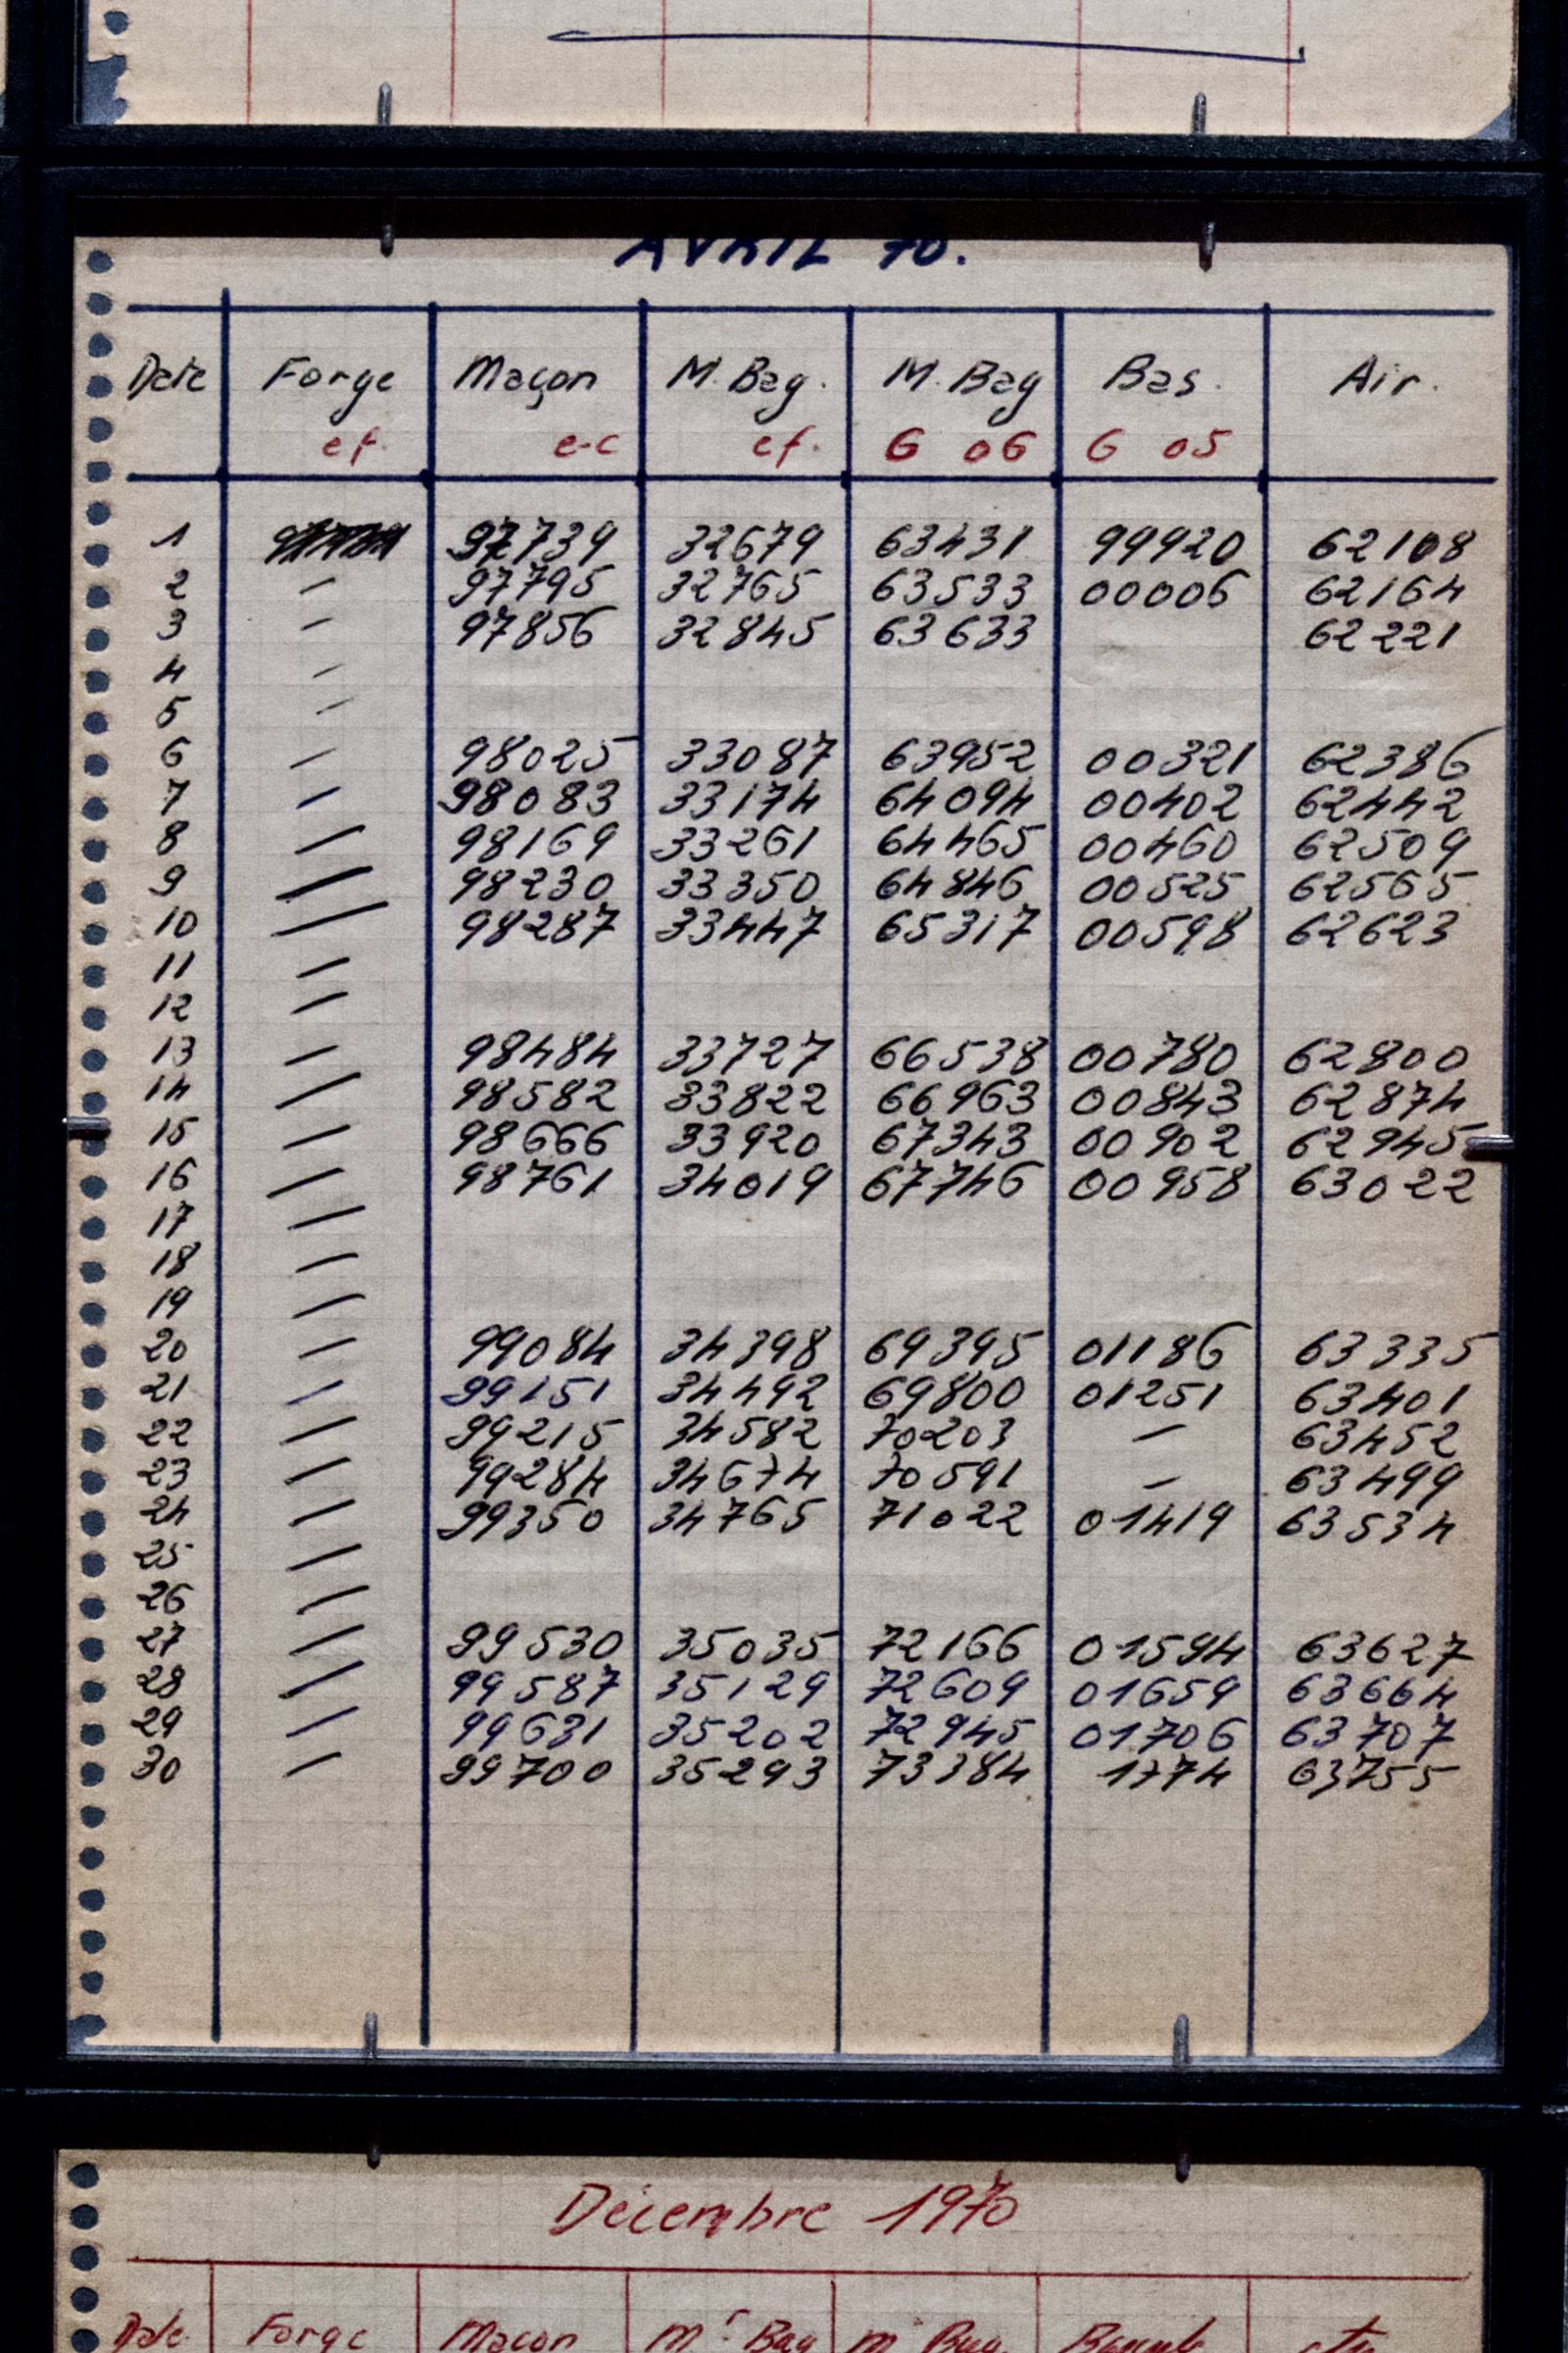 AVRIL 70.
Date Forge Maçon M. Bag. M. Bag Bas. Air.
ef. e-c ef. G 06 G 05
1 97739 32679 63431 99920 62108
2 — 97795 32765 63533 00006 62164
3 — 97856 32845 63633 62221
4 —
5 —
6 — 98025 33087 63952 00321 62386
7 — 98083 33174 64094 00402 62442
8 — 98169 33261 64465 00460 62509
9 — 98230 33350 64846 00525 62565
10 — 98287 33447 65317 00598 62623
11 —
12 —
13 — 98484 33727 66538 00780 62800
14 — 98582 33822 66963 00843 62874
15 — 98666 33920 67343 00902 62945
16 — 98761 34019 67746 00958 63022
17 —
18 —
19 —
20 — 99084 34398 69395 01186 63335
21 — 99151 34492 69800 01251 63401
22 — 99215 34582 70203 — 63452
23 — 99284 34674 70591 — 63499
24 — 99350 34765 71022 01419 63534
25 —
26 —
27 — 99530 35035 72166 01594 63627
28 — 99587 35129 72609 01659 63664
29 — 99631 35202 72945 01706 63707
30 — 99700 35293 73384 1774 63755
Décembre 1970
Date Forge Maçon Mr Bag Mr Bag